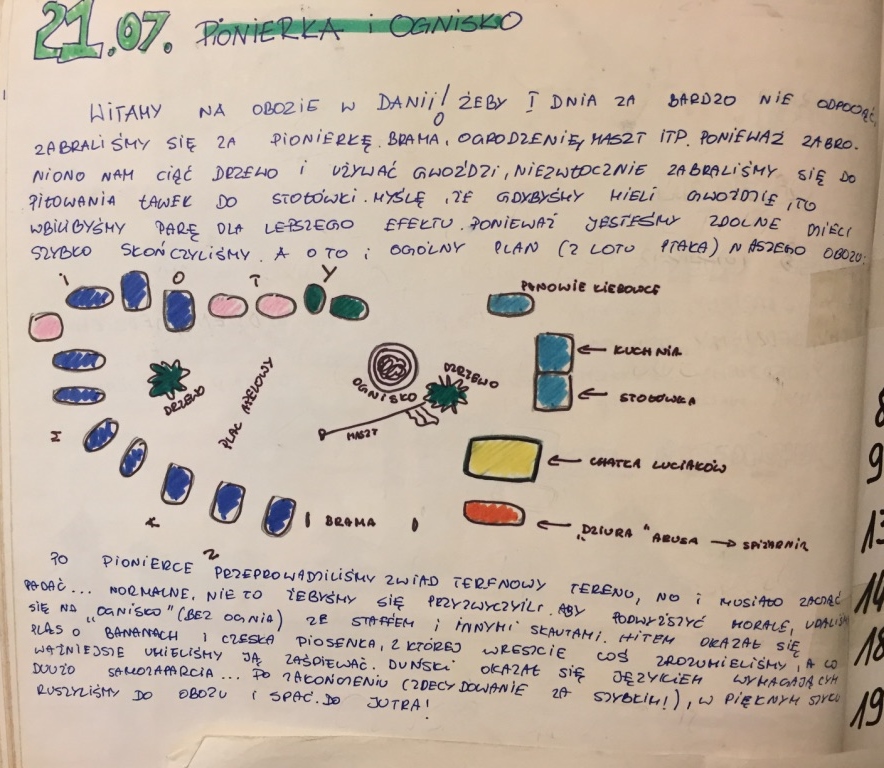 21.07. PIONIERKA i OGNISKO
WITAMY NA OBOZIE W DANII! ŻEBY I DNIA ZA BARDZO NIE ODPOCZĄĆ,
ZABRALIŚMY SIĘ ZA PIONIERKĘ. BRAMA, OGRODZENIE, MASZT ITP. PONIEWAŻ ZABRO-
NIONO NAM CIĄĆ DRZEWO I UŻYWAĆ GWOŹDZI, NIEZWŁOCZNIE ZABRALIŚMY SIĘ DO
PIŁOWANIA ŁAWEK DO STOŁÓWKI. MYŚLĘ, ŻE GDYBYŚMY MIELI GWOŹDZIE, TO
WBILIBYŚMY PARĘ DLA LEPSZEGO EFEKTU. PONIEWAŻ JESTEŚMY ZDOLNE DZIECI
SZYBKO SKOŃCZYLIŚMY. A OTO I OGÓLNY PLAN (Z LOTU PTAKA) NASZEGO OBOZU:
i O T Y
PANOWIE KIEROWCE
KUCHNIA
DRZEWO
PLAC APELOWY
OGNISKO
DRZEWO
STOŁÓWKA
MASZT
CHATKA LUCIAKÓW
BRAMA
"DZIURA" ABUSA → SPIŻARNIA
PO PIONIERCE PRZEPROWADZILIŚMY ZWIAD TERENOWY TERENU, NO I MUSIAŁO ZACZĄĆ
PADAĆ... NORMALNE, NIE TO ŻEBYŚMY SIĘ PRZYZWYCZILI. ABY PODWYŻSZYĆ MORALE, UDALIŚMY
SIĘ NA "OGNISKO" (BEZ OGNIA) ZE STAFFEM I INNYMI SKAUTAMI. HITEM OKAZAŁ SIĘ
PLĄS O BANANACH I CZESKA PIOSENKA, Z KTÓREJ WRESZCIE COŚ ZROZUMIELIŚMY, A CO
WAŻNIEJSZE UMIELIŚMY JĄ ZAŚPIEWAĆ. DUŃSKI OKAZAŁ SIĘ JĘZYKIEM WYMAGAJĄCYM
DUŻO SAMOZAPARCIA... PO ZAKOŃCZENIU (ZDECYDOWANIE ZA SZYBKIM!), W PIĘKNYM SZYKU
RUSZYLIŚMY DO OBOZU I SPAĆ. DO JUTRA!